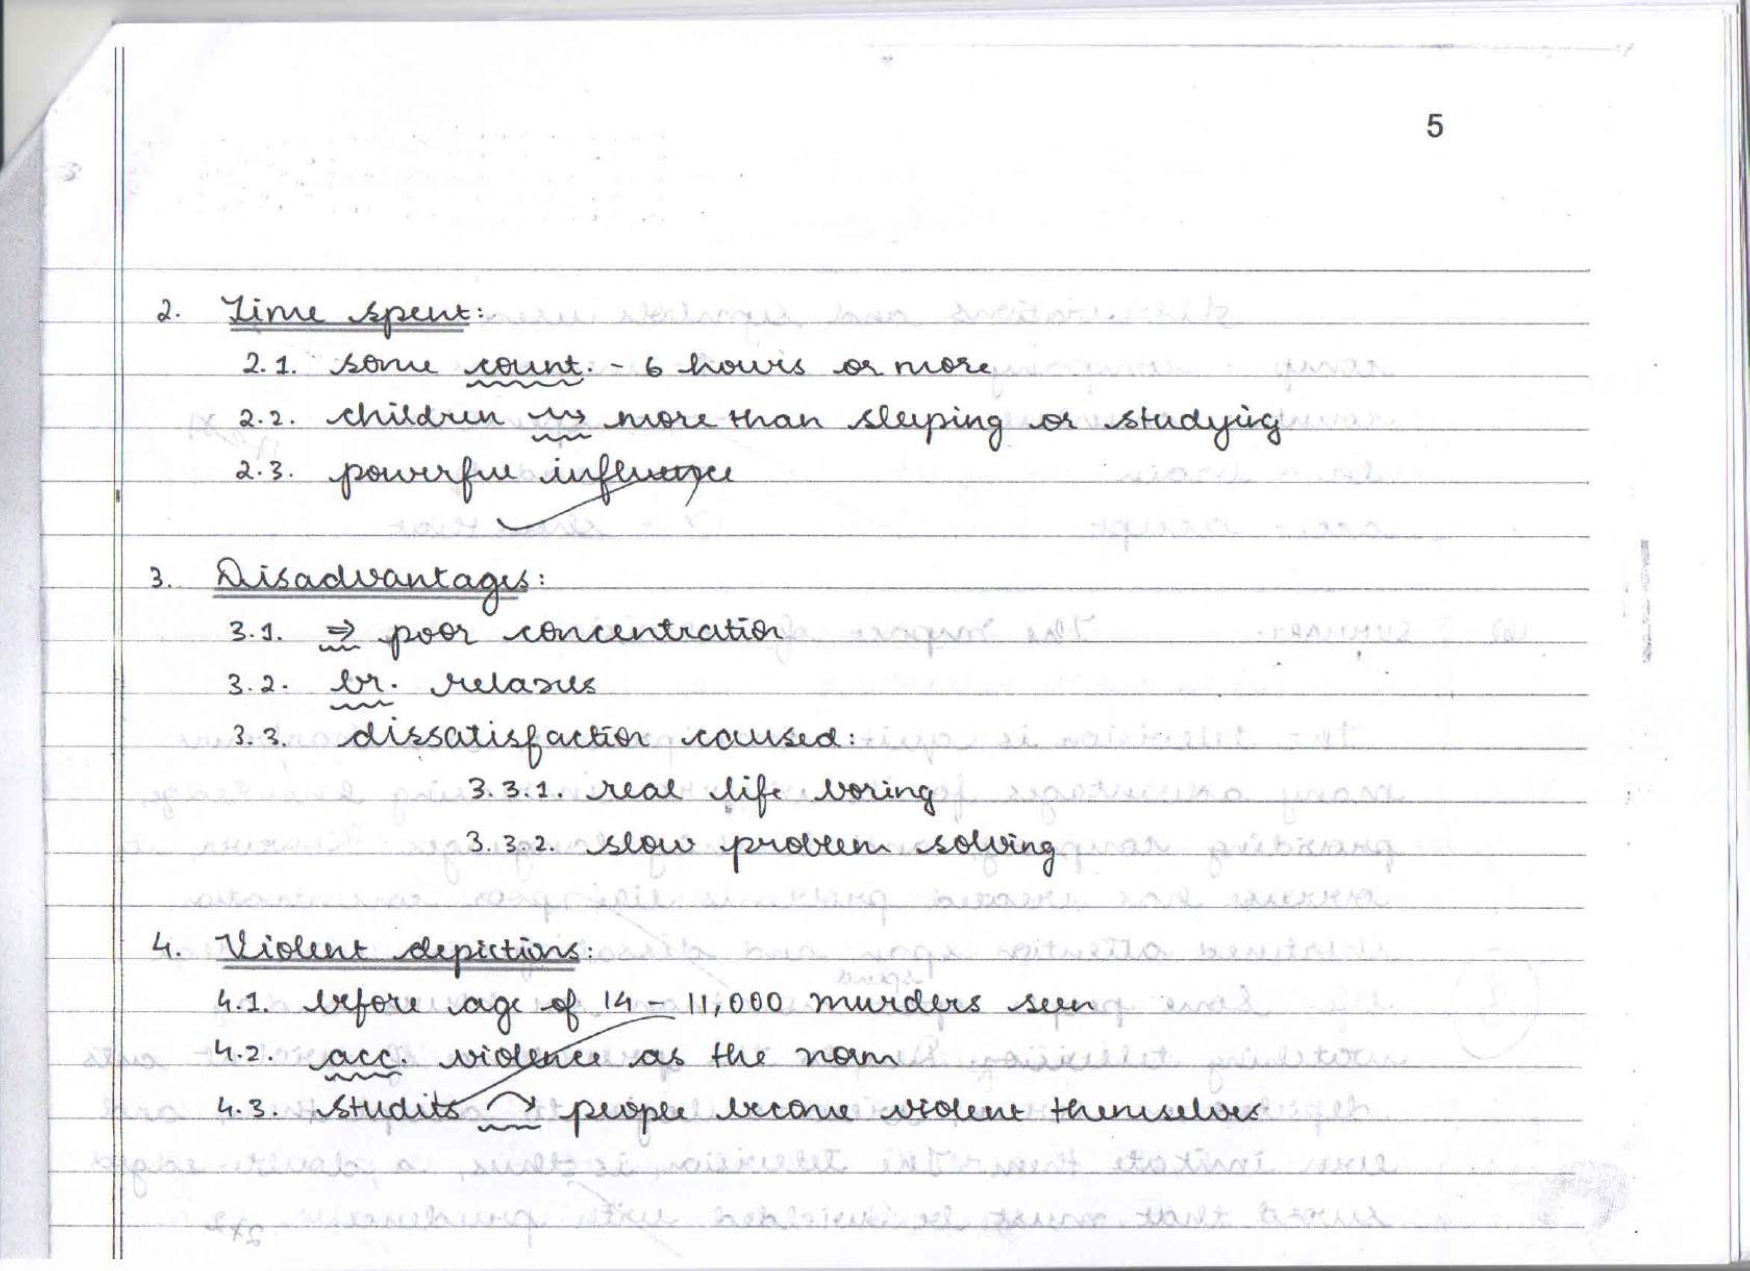 5
2. Time spent:
2.1. some count. - 6 hours or more
2.2. children ⇝ more than sleeping or studying
2.3. powerful influence
3. Disadvantages:
3.1. ⇒ poor concentration
3.2. br. relaxes
3.3. dissatisfaction caused:
3.3.1. real life boring
3.3.2. slow problem solving
4. Violent depictions:
4.1. before age of 14 - 11,000 murders seen
4.2. acc. violence as the norm
4.3. studies ↷ people become violent themselves